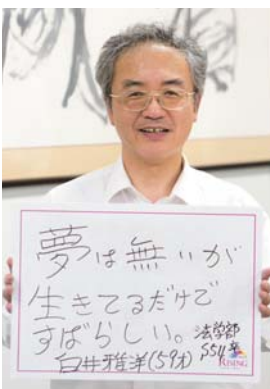 夢は無いが
生きてるだけで
すばらしい。
法学部
S54卒
白井雅洋(59才)
RISING